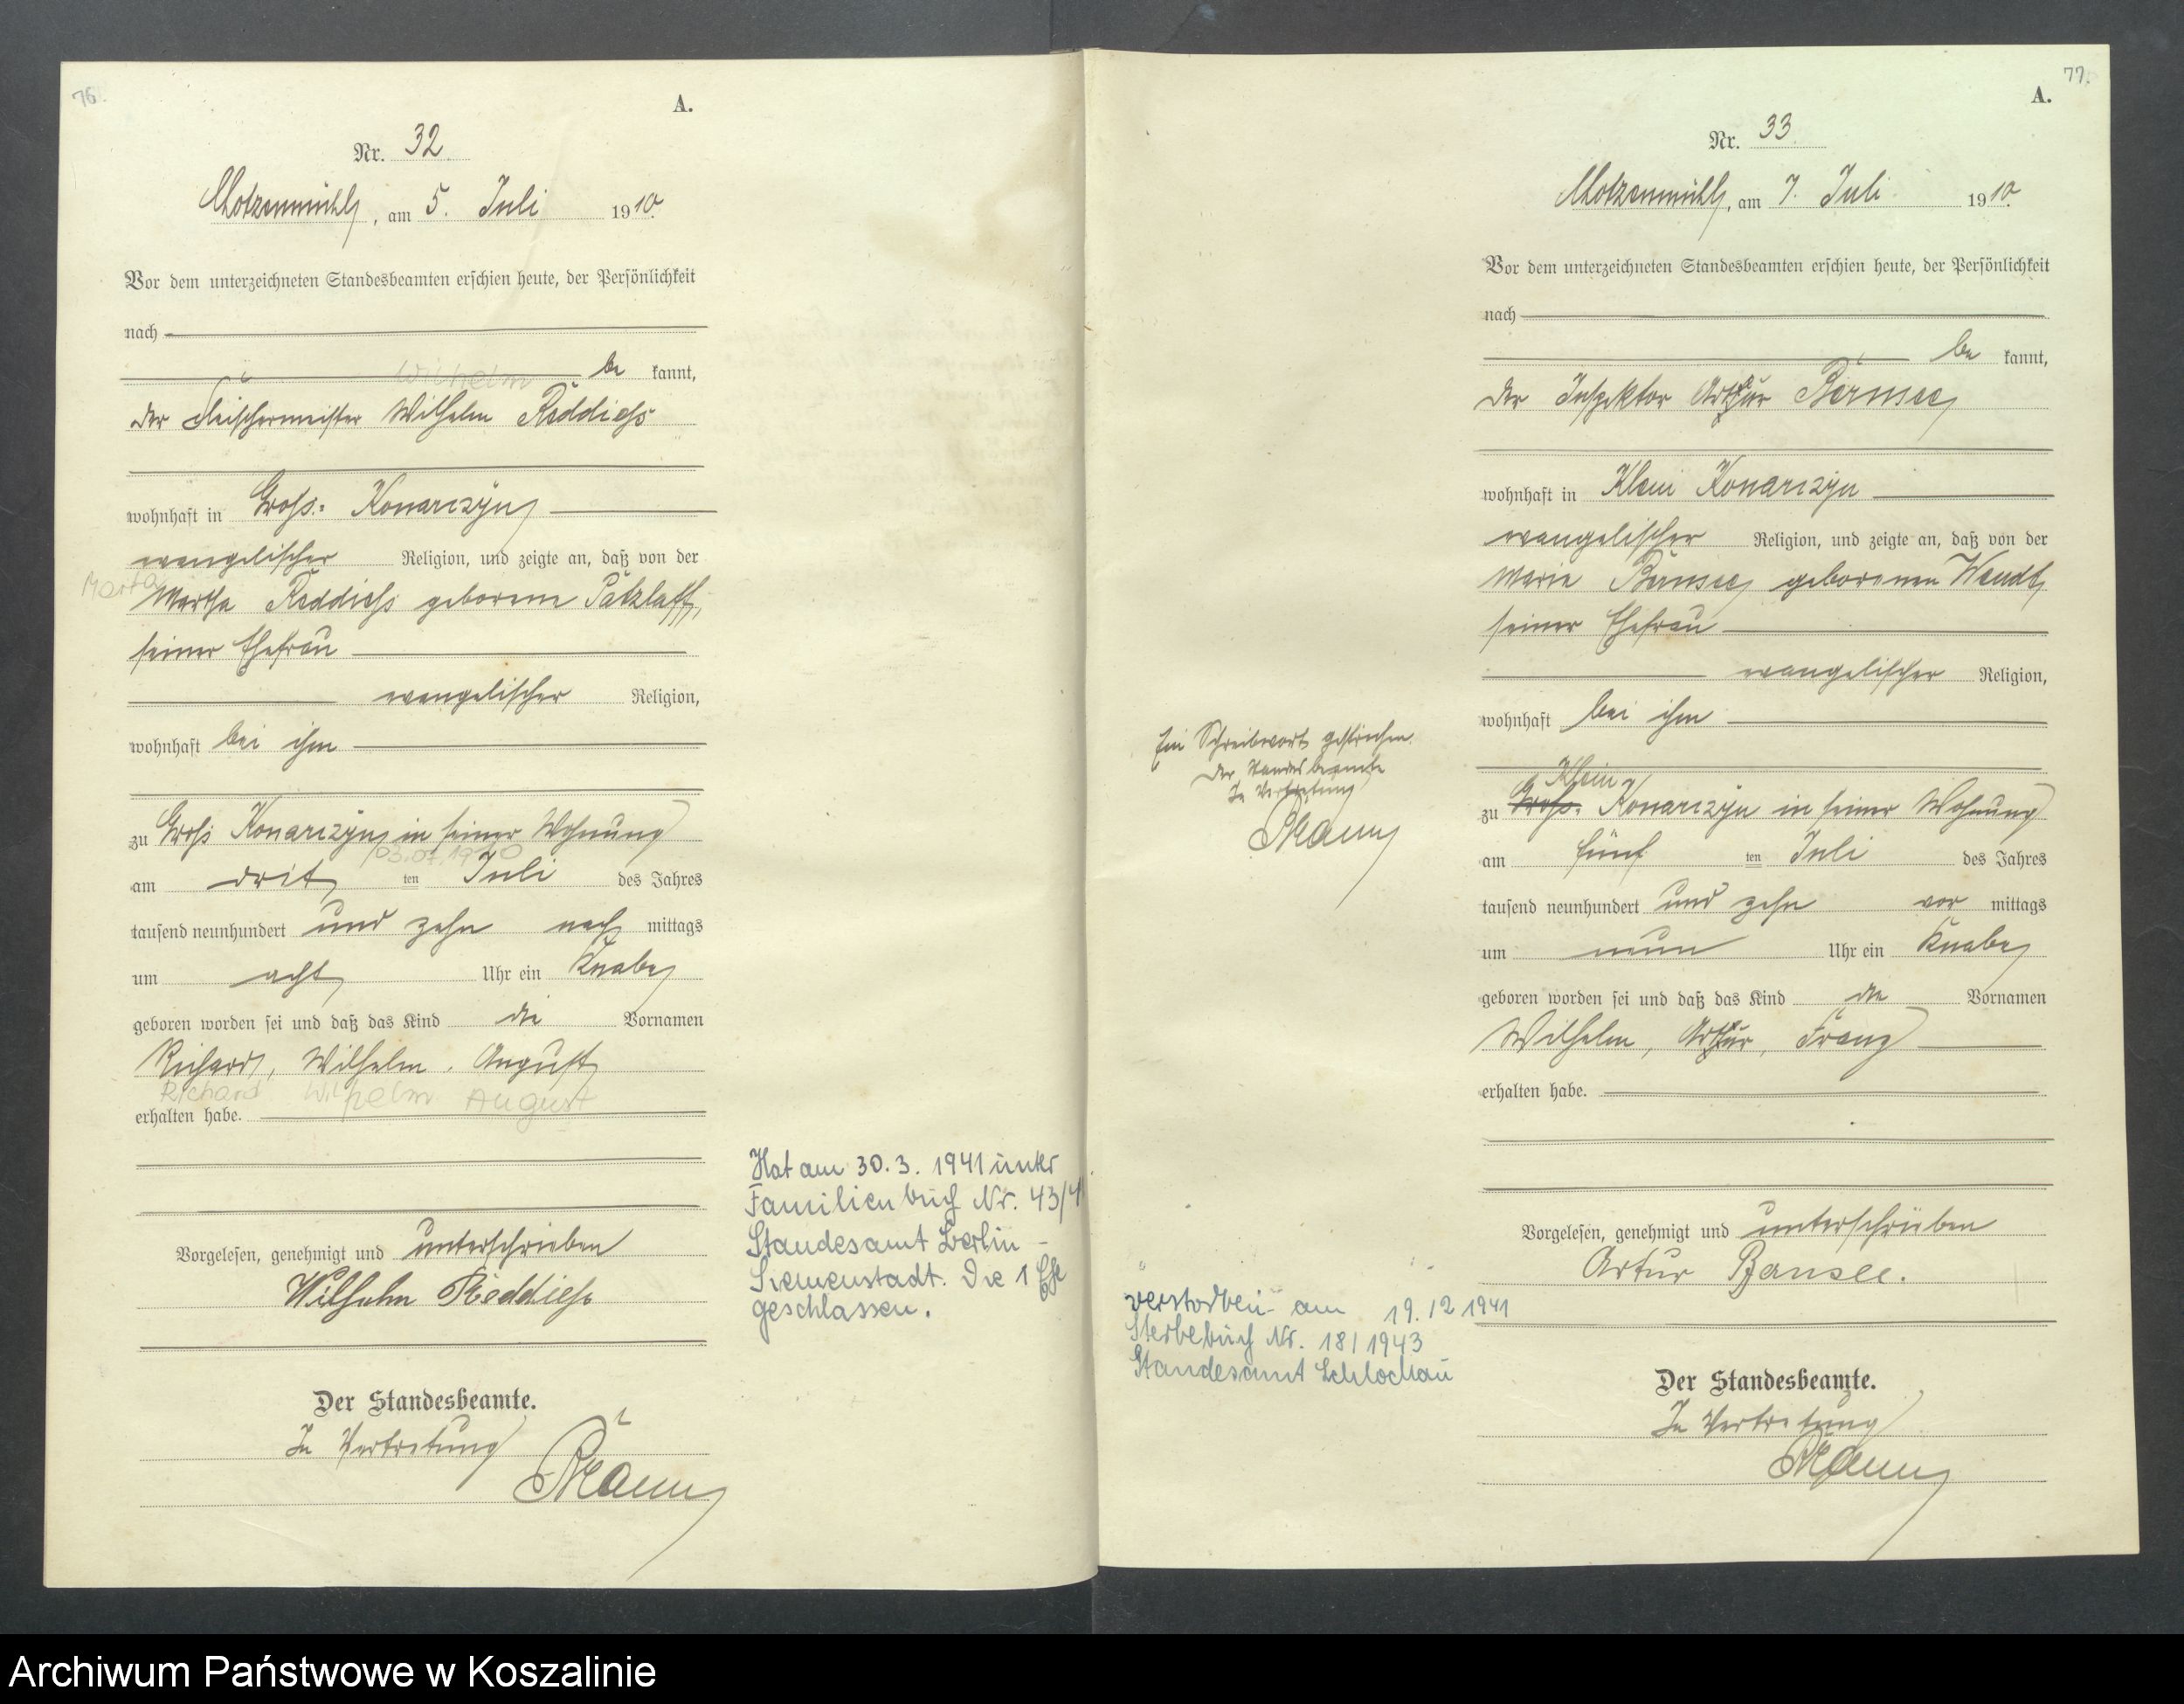 76.
A.
Nr. 32.
Klotzenmühl, am 5. Juli 1910.
Vor dem unterzeichneten Standesbeamten erschien heute, der Persönlichkeit
nach
Wilhelm
be kannt,
der Fleischermeister Wilhelm Reddieß
wohnhaft in Groß-Konarczyn
evangelischer Religion, und zeigte an, daß von der
Marta
Martha Reddieß geborene Pätzlaff,
seiner Ehefrau
evangelischer Religion,
wohnhaft bei ihm
zu Groß Konarczyn in seiner Wohnung
03.07.1910
am drit ten Juli des Jahres
tausend neunhundert und zehn nach mittags
um acht Uhr ein Knabe
geboren worden sei und daß das Kind die Vornamen
Richard, Wilhelm, August
Richard Wilhelm August
erhalten habe.
Vorgelesen, genehmigt und unterschrieben
Wilhelm Reddieß
Der Standesbeamte.
In Vertretung
Hat am 30.3.1941 unter
Familienbuch Nr. 43/41
Standesamt Berlin -
Siemenstadt. Die 1 Ehe
geschlassen.
77.
A.
Nr. 33.
Klotzenmühl, am 7. Juli 1910.
Vor dem unterzeichneten Standesbeamten erschien heute, der Persönlichkeit
nach
be kannt,
der Inspektor Arthur Bansee
wohnhaft in Klein Konarczyn
evangelischer Religion, und zeigte an, daß von der
Marie Bansee geborenen Wendt
seiner Ehefrau
evangelischer Religion,
wohnhaft bei ihm
Klein
zu Groß- Konarczyn in seiner Wohnung
am fünf ten Juli des Jahres
tausend neunhundert und zehn vor mittags
um neun Uhr ein Knabe
geboren worden sei und daß das Kind die Vornamen
Wilhelm, Arthur, Franz
erhalten habe.
Vorgelesen, genehmigt und unterschrieben
Artur Bansee.
Der Standesbeamte.
In Vertretung
Ein Schreibwort gestrichen.
Der Standesbeamte
In Vertretung
verstorben am 19.12 1941
Sterbebuch Nr. 18/1943
Standesamt Schlochau
Archiwum Państwowe w Koszalinie